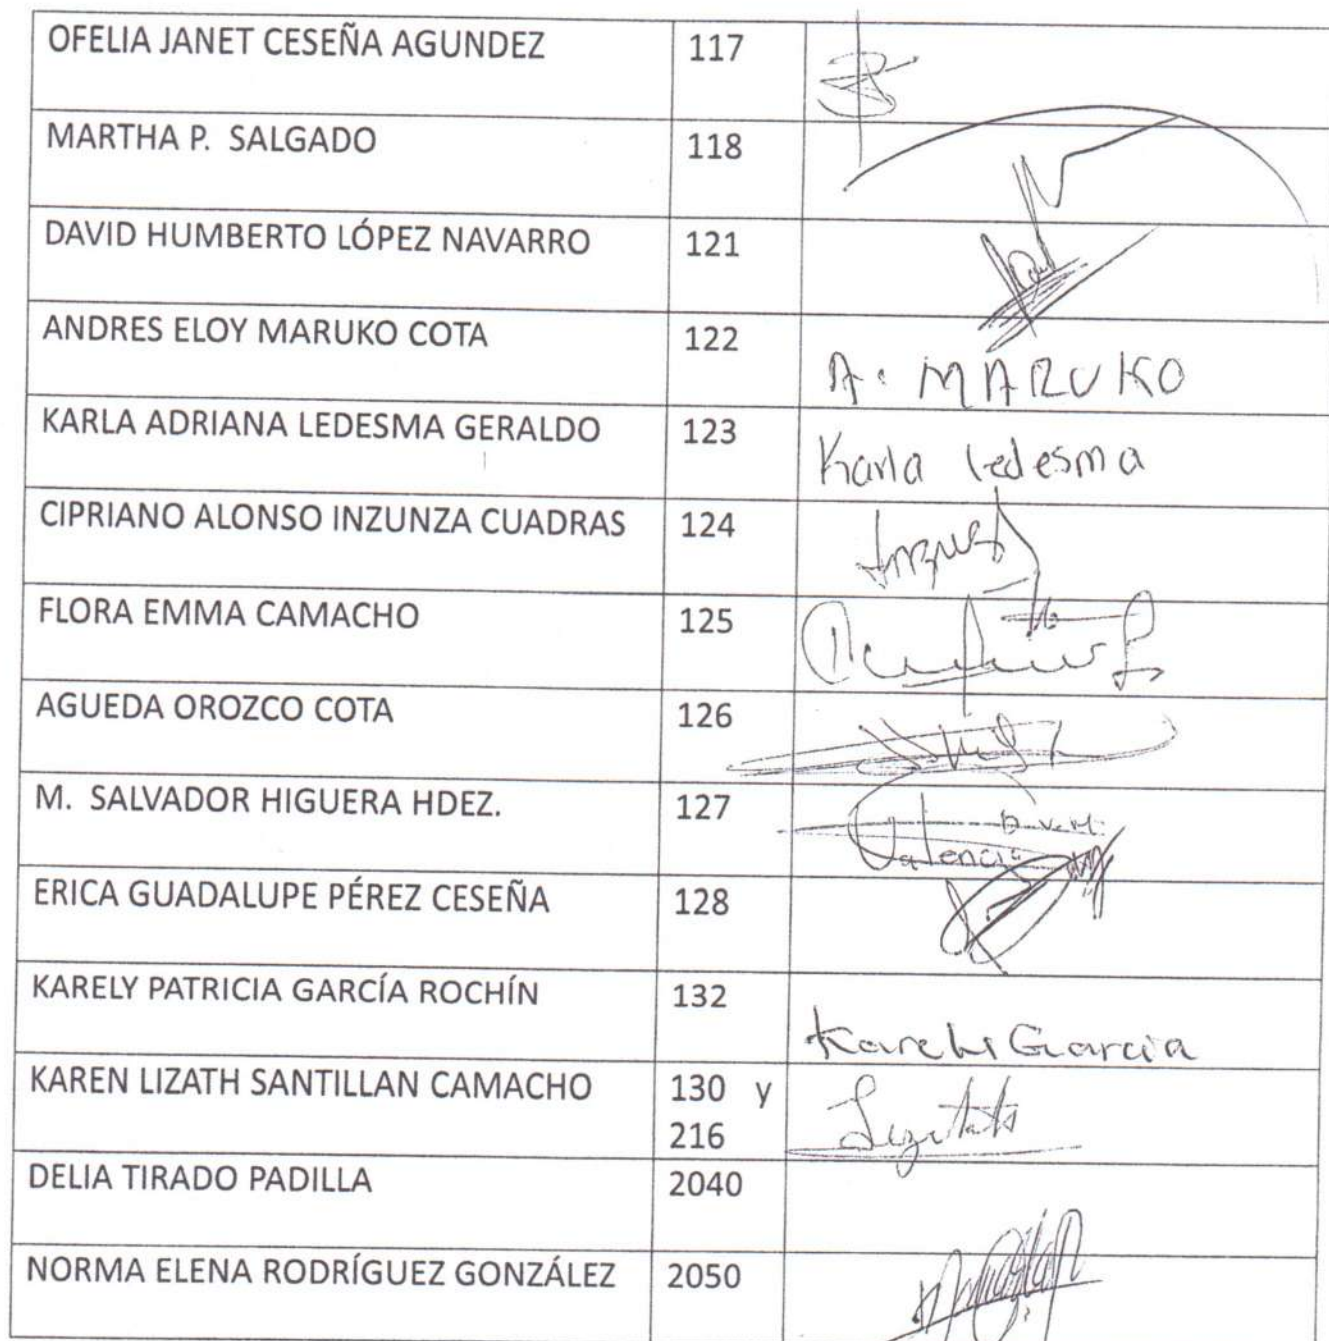 OFELIA JANET CESEÑA AGUNDEZ 117
MARTHA P. SALGADO 118
DAVID HUMBERTO LÓPEZ NAVARRO 121
ANDRES ELOY MARUKO COTA 122 A. MARUKO
KARLA ADRIANA LEDESMA GERALDO 123 Karla ledesma
CIPRIANO ALONSO INZUNZA CUADRAS 124
FLORA EMMA CAMACHO 125
AGUEDA OROZCO COTA 126
M. SALVADOR HIGUERA HDEZ. 127 Valencia
ERICA GUADALUPE PÉREZ CESEÑA 128
KARELY PATRICIA GARCÍA ROCHÍN 132 Karely Garcia
KAREN LIZATH SANTILLAN CAMACHO 130 y
216
DELIA TIRADO PADILLA 2040
NORMA ELENA RODRÍGUEZ GONZÁLEZ 2050